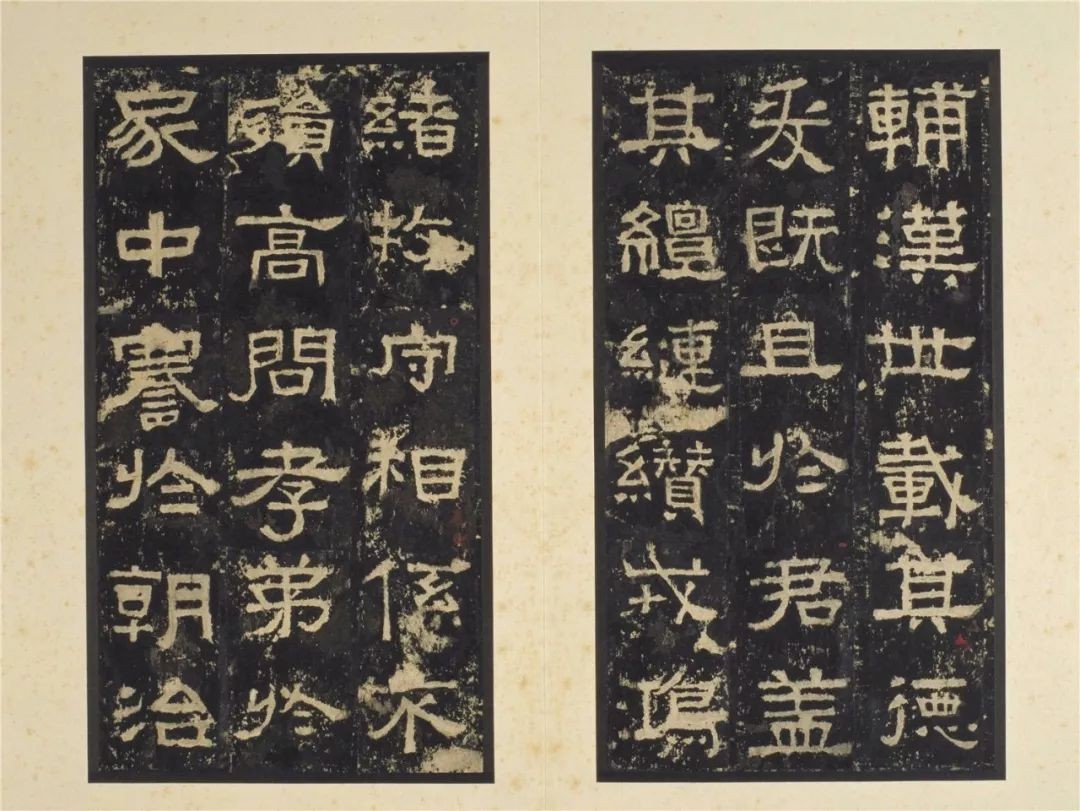 輔漢世載其德
爰既且於君盖
其繵縺纘戎鴻
緒牧守相係不
殞高問孝弟於
家中謇於朝治